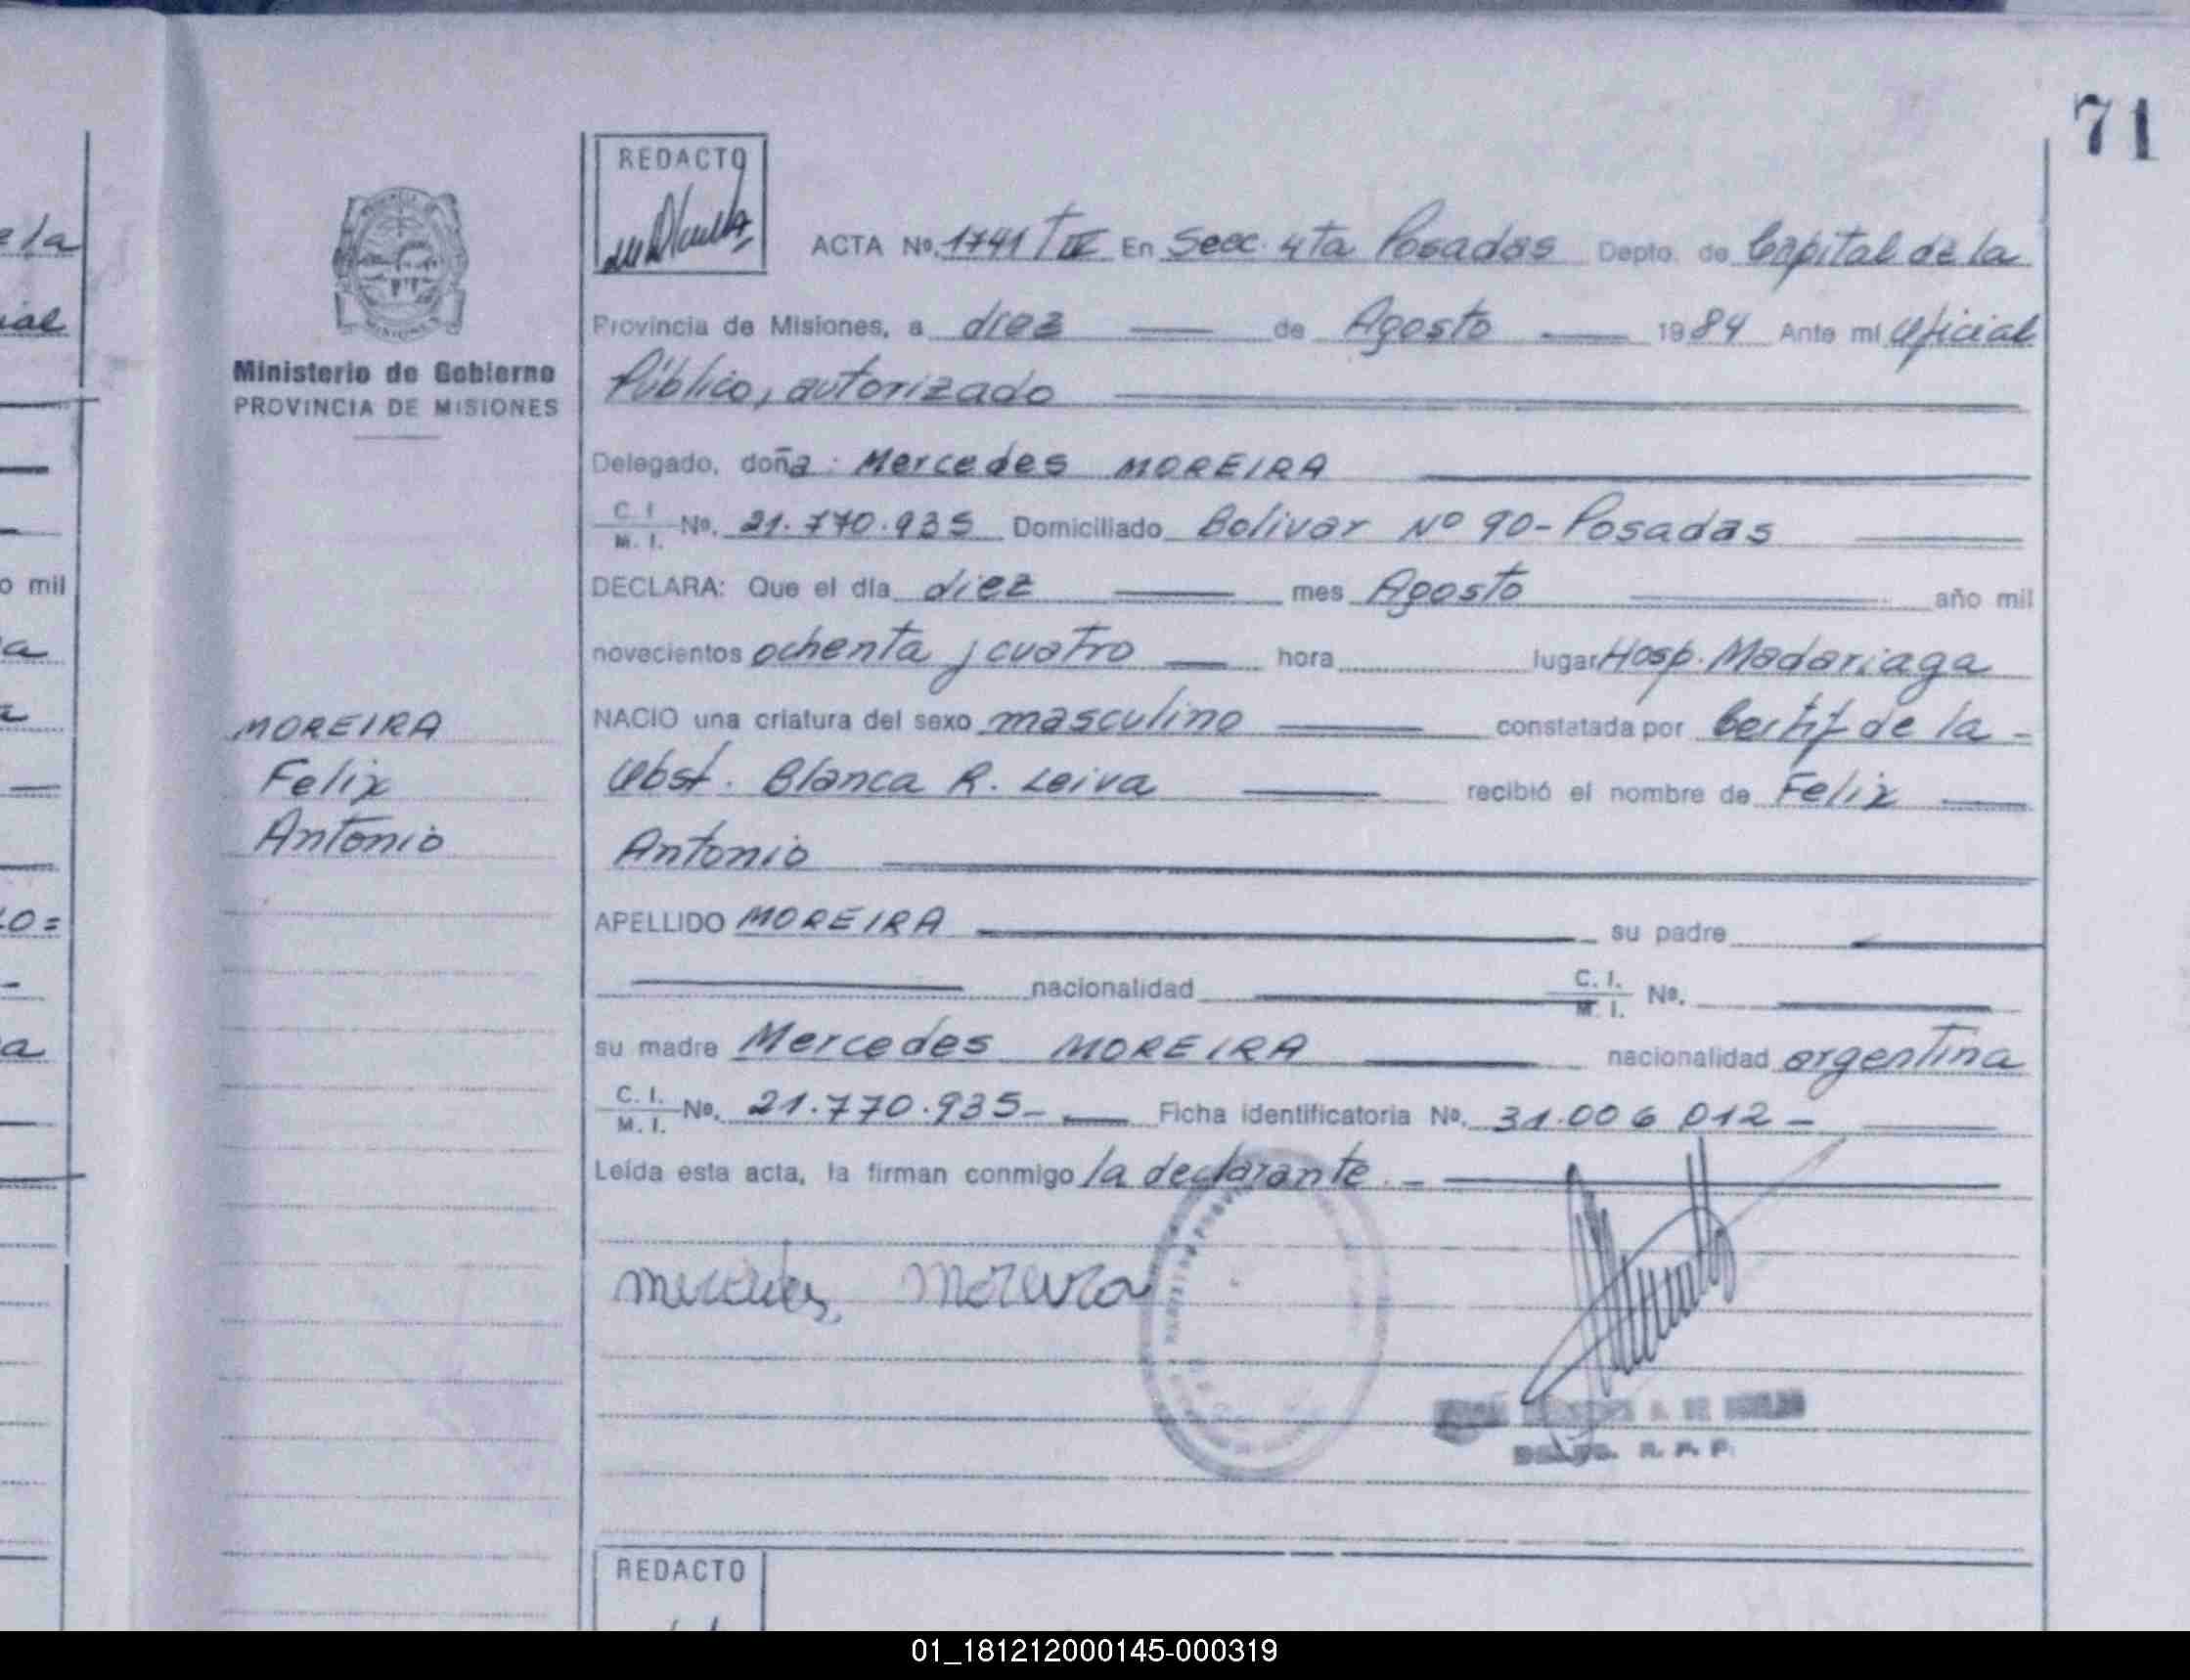 71
REDACTO
ACTA Nº. 1741 T III En Secc. 4ta Posadas Depto. de Capital de la
Provincia de Misiones, a diez de Agosto 1984 Ante mí Oficial
Público, autorizado
Ministerio de Gobierno
PROVINCIA DE MISIONES
Delegado, doña: Mercedes MOREIRA
C. I. / M. I. Nº. 21.770.935 Domiciliado Bolivar Nº 90-Posadas
DECLARA: Que el día diez mes Agosto año mil
novecientos ochenta y cuatro hora lugar Hosp. Madariaga
NACIO una criatura del sexo masculino constatada por Certif de la -
Obst. Blanca R. Leiva recibió el nombre de Felix
Antonio
MOREIRA
Felix
Antonio
APELLIDO MOREIRA su padre
nacionalidad C. I. / M. I. Nº.
su madre Mercedes MOREIRA nacionalidad argentina
C. I. / M. I. Nº. 21.770.935- Ficha identificatoria Nº. 31.006 012 -
Leída esta acta, la firman conmigo la declarante. -
mercedes, Moreira
R. P. P.
REDACTO
e la
ial
o mil
a
a
LO=
-
a
01_181212000145-000319